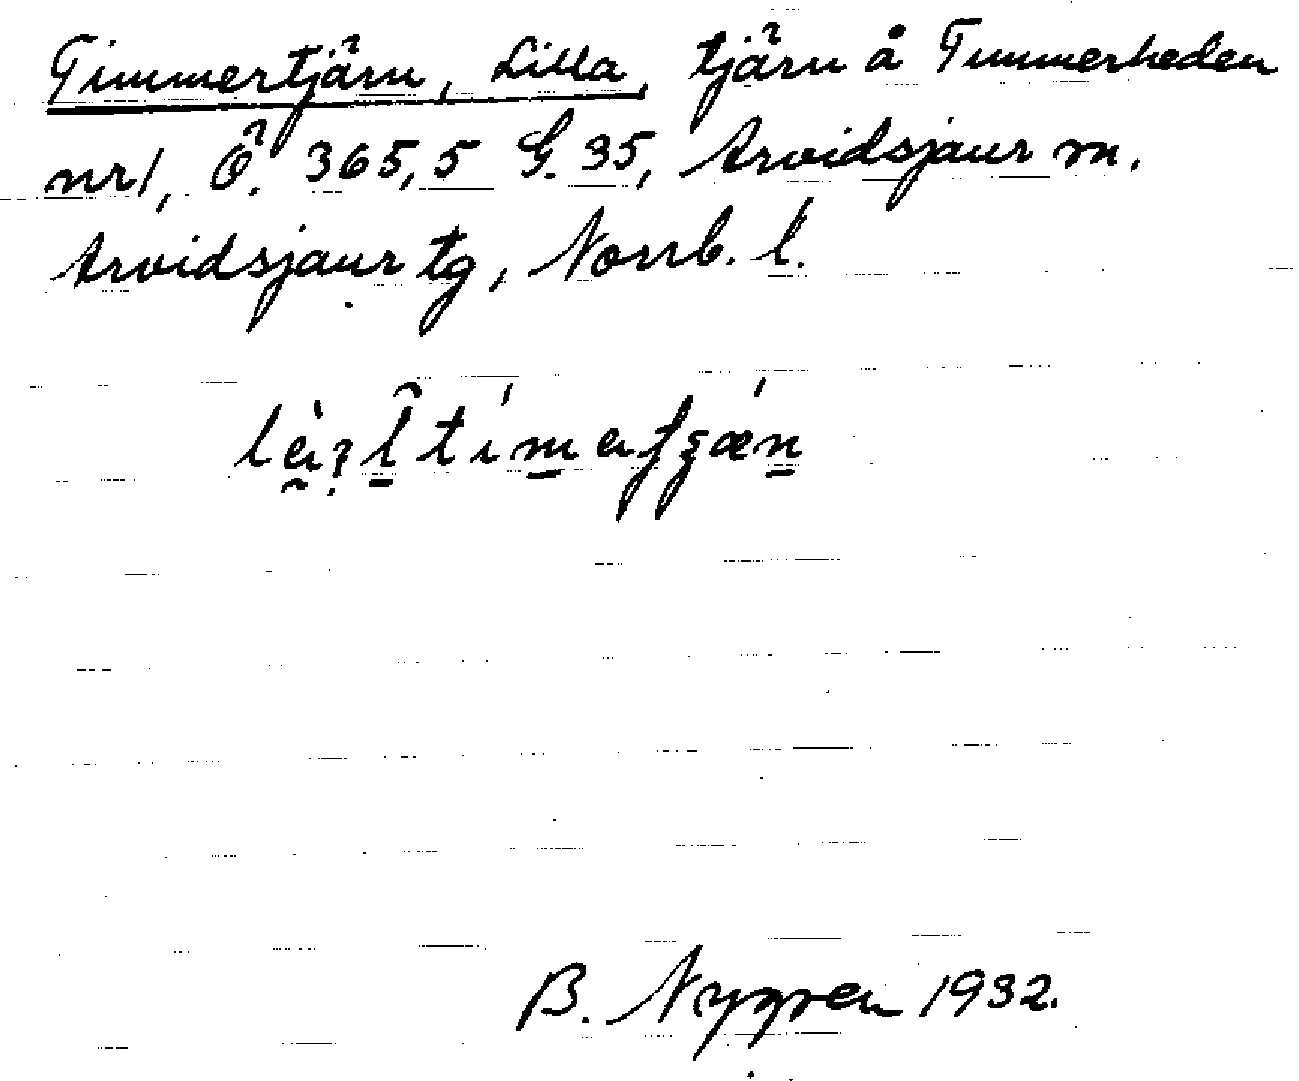 Timmertjärn, Lilla, tjärn å Timmerheden
nr 1, Ö. 365,5 G. 35, Arvidsjaur m.
Arvidsjaur tg, Norrb. l.
B. Nygren 1932.